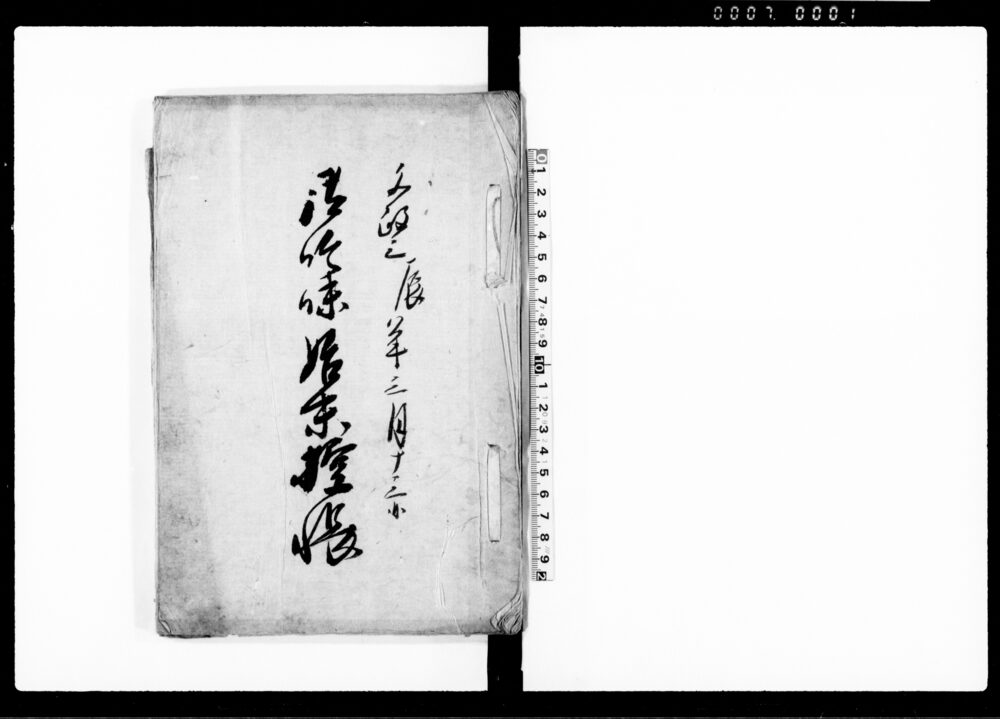 0007. 0001
文政三辰年三月十三
諸吟味始末控帳
0 1 2 3 4 5 6 7 8 9 10 1 2 3 4 5 6 7 8 9 2